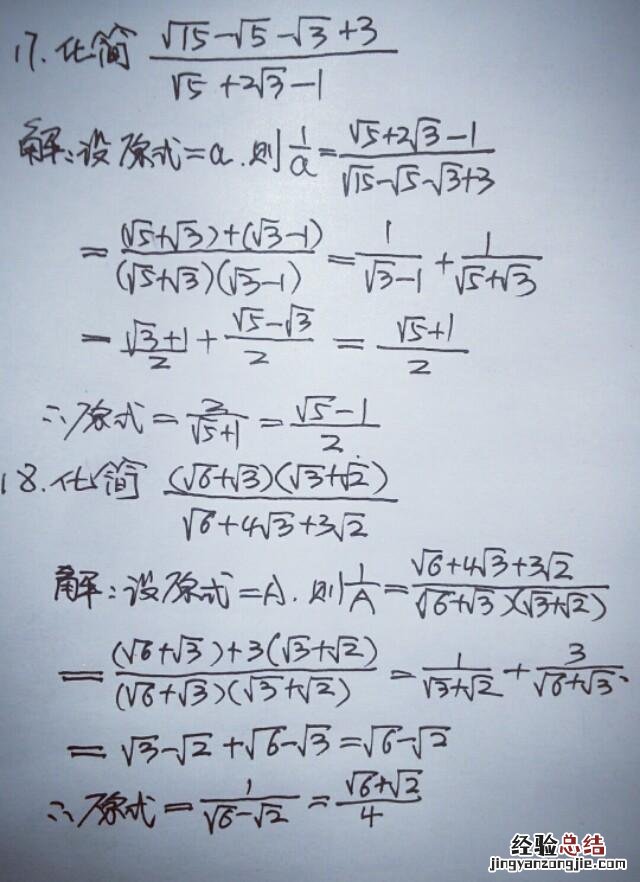 17. 化简 (√15-√5-√3+3)/(√5+2√3-1)
解:设原式=a.则1/a=(√5+2√3-1)/(√15-√5-√3+3)
=((√5+√3)+(√3-1))/((√5+√3)(√3-1))=1/(√3-1)+1/(√5+√3)
=(√3+1)/2+(√5-√3)/2=(√5+1)/2
∴原式=2/(√5+1)=(√5-1)/2.
18. 化简 ((√6+√3)(√3+√2))/(√6+4√3+3√2)
解:设原式=A.则1/A=(√6+4√3+3√2)/((√6+√3)(√3+√2))
=((√6+√3)+3(√3+√2))/((√6+√3)(√3+√2))=1/(√3+√2)+3/(√6+√3).
=√3-√2+√6-√3=√6-√2
∴原式=1/(√6-√2)=(√6+√2)/4
经验总结
jingyanzongjie.com